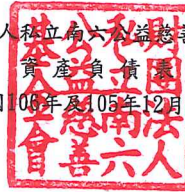 人私立南六公益慈善
資產負債表
106年及105年12月
財團法人
私立南六
公益慈善
基金會